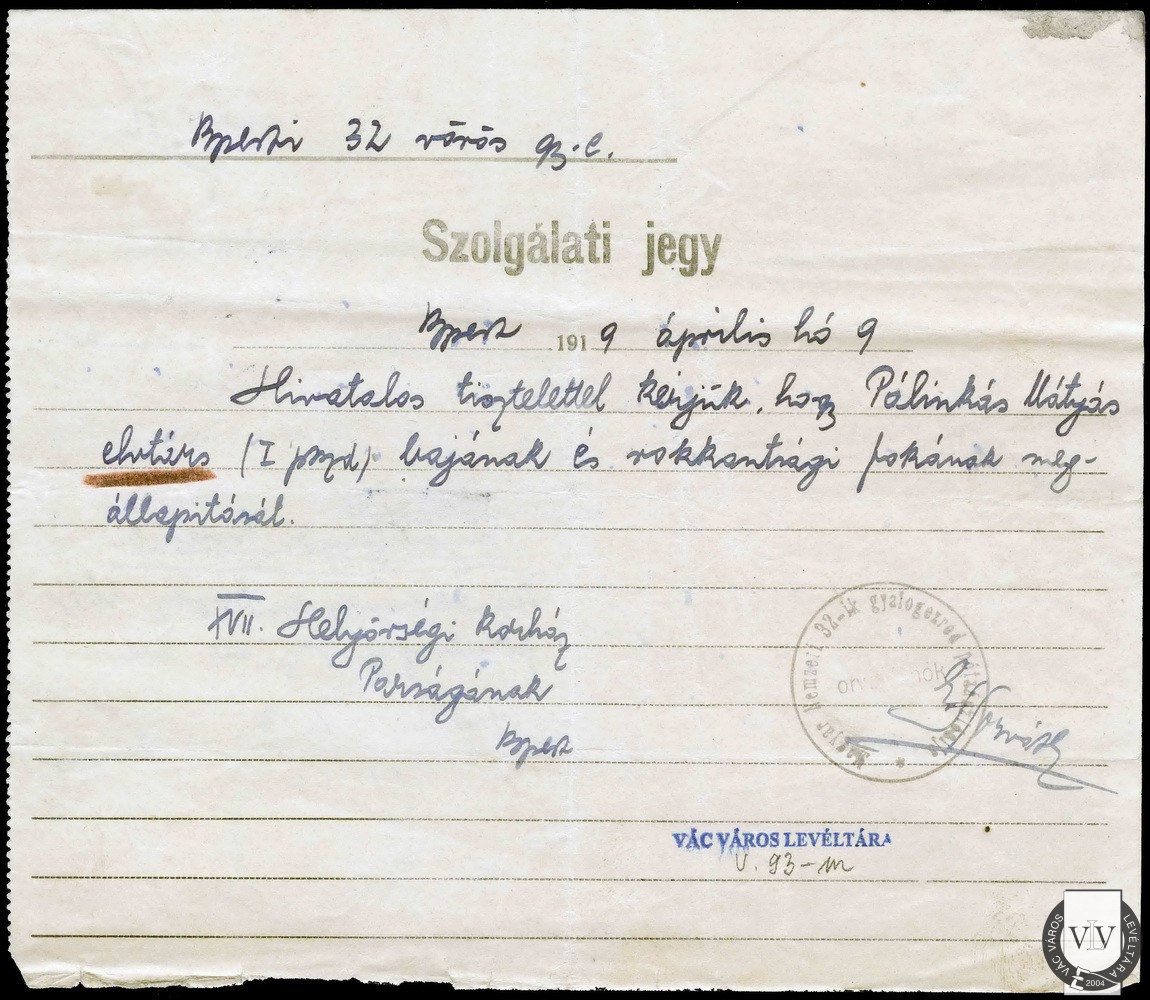 Bpesti 32 vörös gy. e.
Szolgálati jegy
Bpest 1919 április hó 9
Hivatalos tisztelettel kérjük, hogy Pálinkás Mátyás
elvtárs (I pszd) bajának és rokkantsági fokának meg-
állapitásál.
XVII. Helyőrségi Kórház
Parságának
Bpest
Magyar Nemzeti 32-ik gyalogezred
Horváth
VÁC VÁROS LEVÉLTÁRA
V. 93-m
VÁC VÁROS LEVÉLTÁRA
VLV
2004